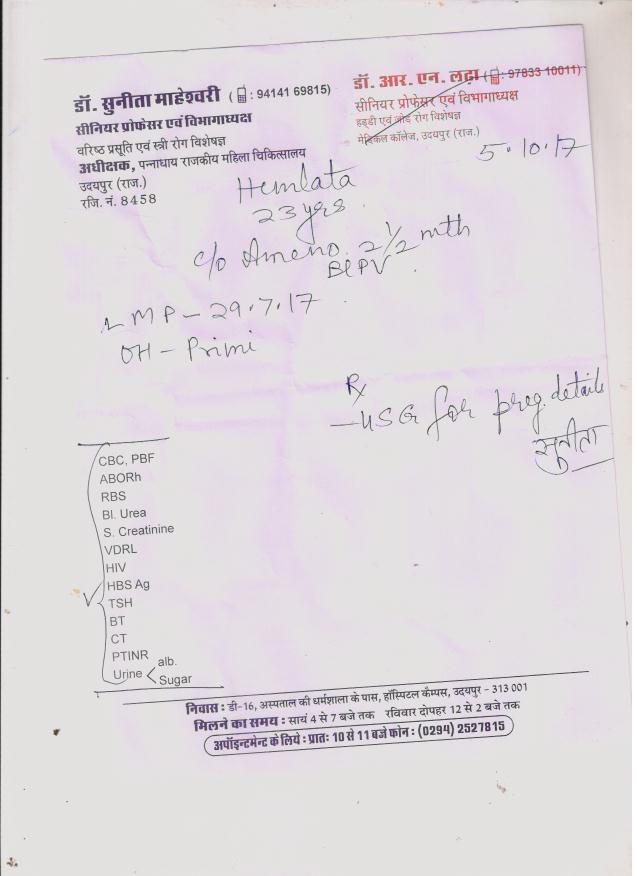 डॉ. सुनीता माहेश्वरी ( : 94141 69815)
सीनियर प्रोफेसर एवं विभागाध्यक्ष
वरिष्ठ प्रसूति एवं स्त्री रोग विशेषज्ञ
अधीक्षक, पन्नाधाय राजकीय महिला चिकित्सालय
उदयपुर (राज.)
रजि. नं. 8458
डॉ. आर. एन. लढ़ा ( : 97833 10011)
सीनियर प्रोफेसर एवं विभागाध्यक्ष
हड्डी एवं जोड़ रोग विशेषज्ञ
मेडिकल कॉलेज, उदयपुर (राज.)
5.10.17
Hemlata
23 yrs
c/o Ameno. 2 1/2 mth
BlPV
LMP - 29.7.17
OH - Primi
Rx
- USG for preg. details
सुनीता
CBC, PBF
ABORh
RBS
Bl. Urea
S. Creatinine
VDRL
HIV
HBS Ag
TSH
BT
CT
PTINR
Urine < alb.
Sugar
निवास : डी-16, अस्पताल की धर्मशाला के पास, हॉस्पिटल कैम्पस, उदयपुर - 313 001
मिलने का समय : सायं 4 से 7 बजे तक रविवार दोपहर 12 से 2 बजे तक
अपॉइन्टमेन्ट के लिये : प्रातः 10 से 11 बजे फोन : (0294) 2527815